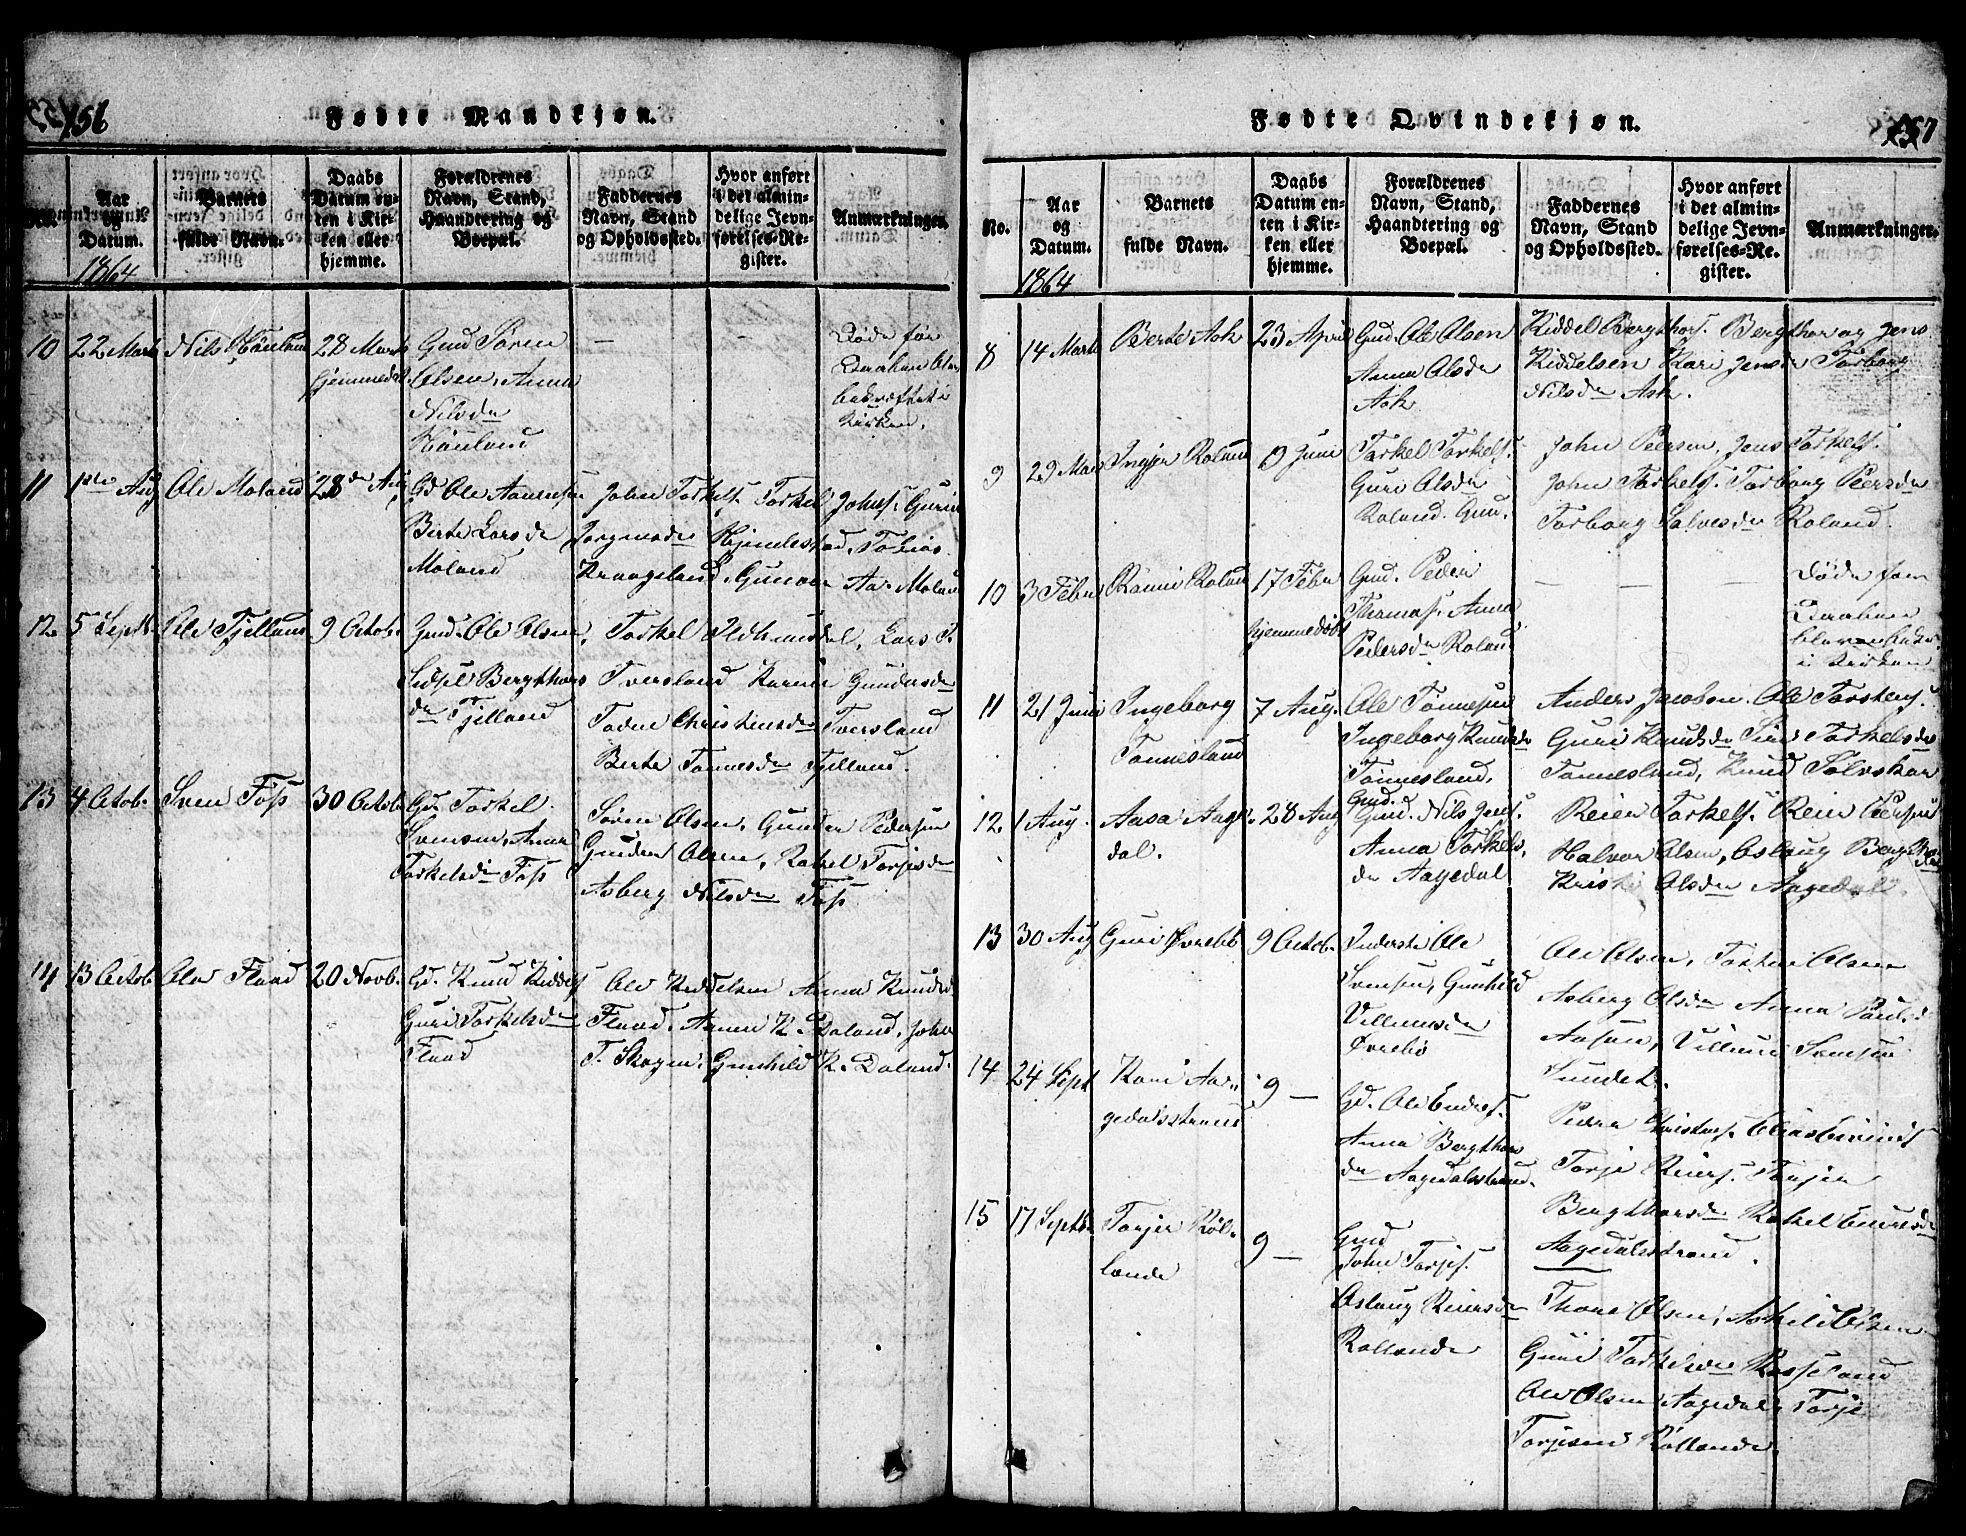 156
Fødte Mandkjøn.
No.
Aar og Datum.
Barnets fulde Navn.
Daabs Datum enten i Kirken eller hjemme.
Forældrenes Navn, Stand, Haandtering og Boepæl.
Faddernes Navn, Stand og Opholdssted.
Hvor anført i det almindelige Jevnførelses-Register.
Anmærkninger.
1864
10 22 Marts Nils Høiland 28 Marts hjemmedøbt
Gmd Søren
Olsen, Anna
Nilsd.
Høiland
Døde før
bekræftet i
Kirken.
11 1ste Aug Ole Moland 28de Aug
Gd Ole Aanensen
Berte Larsd.
Moland
John Torkels. Torkel Johns. Guri
Jorgensd. Hjemlestad, Tobias
Kraageland, Gunvor Aa. Moland
12. 5 Septb. Ole Fjelland 9 Octob.
Gmd. Ole Olsen,
Sidsel Bergthors
d. Fjelland
Torkel Udhuusdal, Lars T.
Tversland Karen Gundersd.
Todne Christensd. Tversland
Berte Tønnesd. Fjelland.
13 4 Octob. Sven Foss 30 Octob.
Gd. Torkel
Svensen, Anne
Torkelsd. Foss
Søren Olsen, Gunder Pedersen
Gunder Olsen, Rakel Torjesd.
Asberg Nilsd. Foss
14 13 Octob. Olav Flaad 20 Novb.
Gd. Knud Kiddels.
Guri Torkelsd.
Flaad
Ole Kiddelsen Anna Knudsd.
Flaad, Aanen K. Roland, John
T. Skogen, Gunhild K. Roland.
157
Fødte Qvindekjøn.
No.
Aar og Datum.
Barnets fulde Navn.
Daabs Datum enten i Kirken eller hjemme.
Forældrenes Navn, Stand, Haandtering og Boepæl.
Faddernes Navn, Stand og Opholdssted.
Hvor anført i det almindelige Jevnførelses-Register.
Anmærkninger.
1864
8 14 Marts Berte Ask 23 April
Gmd. Ole Olsen
Anna Olsd.
Ask
Kiddel Bergthors. Bergthor og Jens
Kiddelsen Kari Jensd. Torborg
Nilsd. Ask.
9 29 Mai Ingjer Roland 19 Juni
Torkel Torkels.
Guri Olsd.
Roland. Gmd.
John Peersen, Jens Torkels.
John Torkels. Torborg Peersd.
Torborg Salvesd. Roland.
10 3 Febr Rønne Roland 17 Febr hjemmedøbt
Gmd. Peder
Thomas. Anna
Pedersd. Roland
Døde før
i Kirken
11 21 Juni Ingeborg Tønnesland 7 Aug.
Ole Tønnesen
Ingeborg Knudsd.
Tønnesland,
Gmd.
Anders Jacobsen. Ole Torkels.
Guri Knudsd. Siri Torkelsd.
Tønnesland, Knud Sølvskar
12 1 Aug. Aasa Aagedal. 28 Aug
Gmd. Nils Jens.
Anna Torkels.
d. Aagedal
Reier Torkels. Reier Peersen
Halvor Olsen, Oslaug Bergthorsd.
Kristi Olsd. Aagedal.
13 30 Aug Guri Øvrebø 9 Octob.
Inderste Ole
Svensen, Gunhild
Villumsd.
Øvrebø
Ole Olsen, Torkel Olsen
Asberg Olsd. Anna Pauls.
Aasen, Villum Svensen
Sundet.
14 24 Sept Kari Aagedalsstrand 9 —
Gd. Ole Enders.
Anna Bergthors
d. Aagedalsstrand.
Peder Christens. Elias Eivinds
Torje Reiers. Torjer
Bergthorsd. Rakel Endresd.
Aagedalsstrand.
15 17 Septb. Torjer Røllande 9 —
Gmd
John Torjes.
Oslaug Reiersd.
Røllande
Thore Olsen, Askild Olsen
Guri Torkelsd. Rosseland
Ole Olsen Aagedal, Torje
Torjesen Røllande.